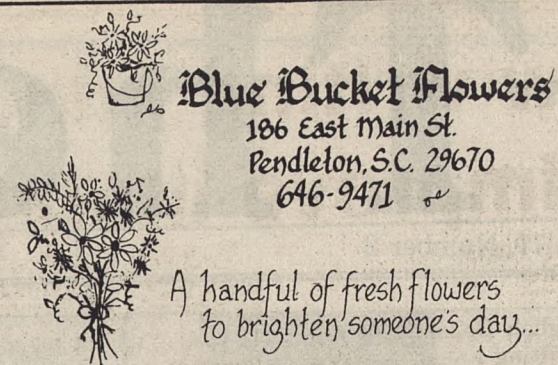 Blue Bucket Flowers
186 East Main St.
Pendleton, S.C. 29670
646-9471
A handful of fresh flowers
to brighten someone's day...